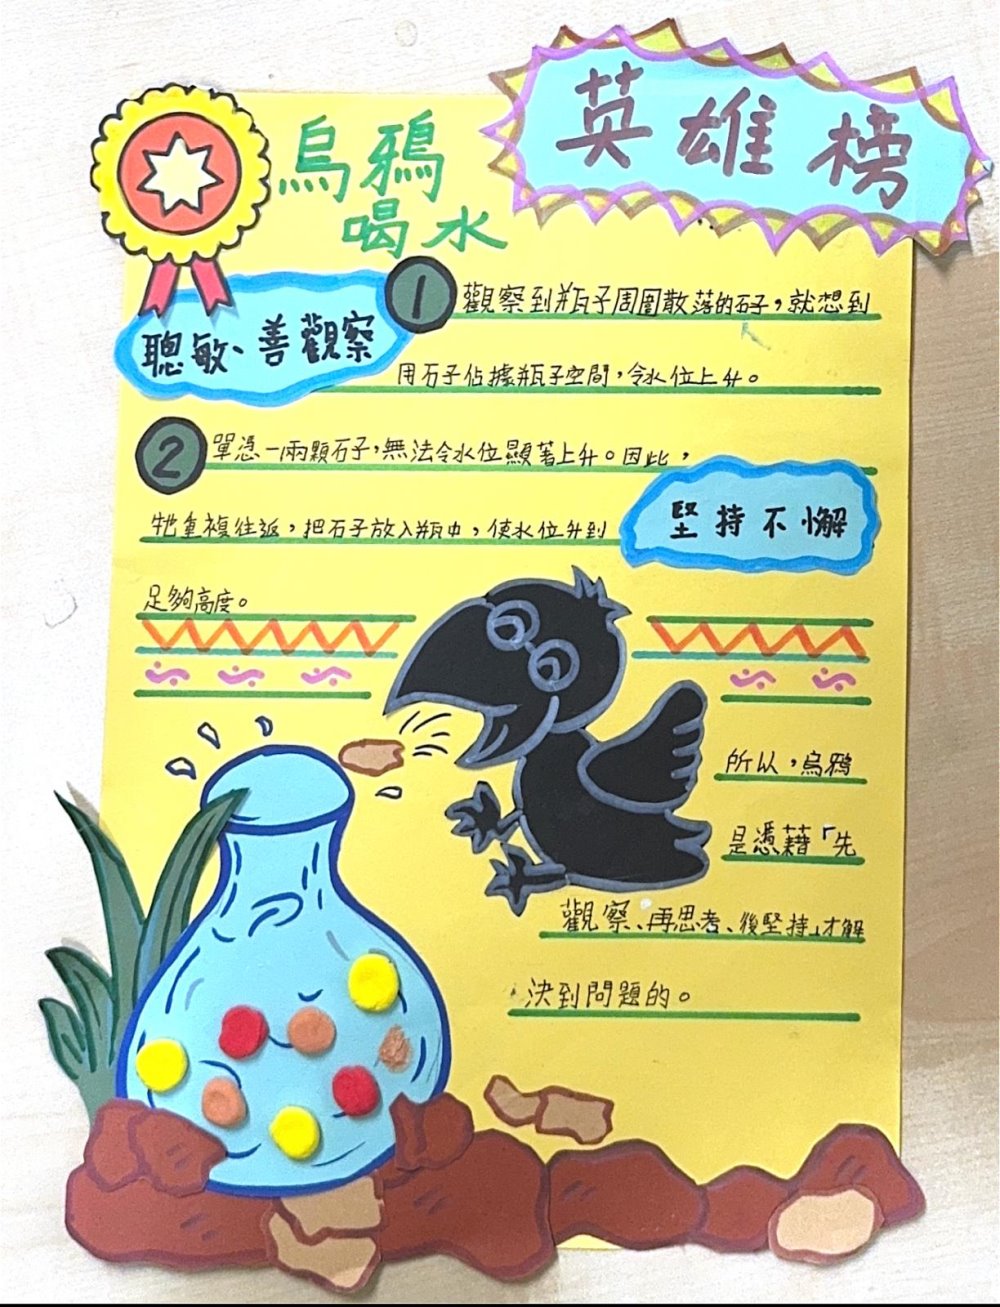 英雄榜
烏鴉
喝水
聰敏、善觀察
1
觀察到瓶子周圍散落的石子，就想到
用石子佔據瓶子空間，令水位上升。
2
單憑一兩顆石子，無法令水位顯著上升。因此，
牠重複往返，把石子放入瓶中，使水位升到
堅持不懈
足夠高度。
所以，烏鴉
是憑藉「先
觀察、再思考、後堅持」才解
決到問題的。